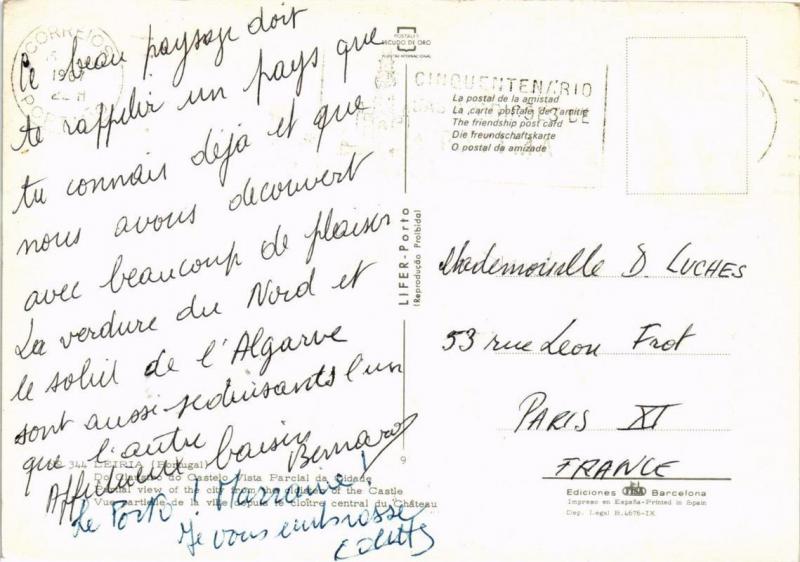 Ce beau paysage doit
te rappeler un pays que
tu connais déjà et que
nous avons découvert
avec beaucoup de plaisir
La verdure du Nord et
le soleil de l'Algarve
sont aussi séduisants l'un
que l'autre
Affectueux baisers
Bernard
Le Porto : Merveille !
Je vous embrasse
Colette
344 LEIRIA (Portugal)
Do Claustro do Castelo Vista Parcial da Cidade
Partial view of the city from the cloister of the Castle
Vue partielle de la ville depuis le cloître central du Château
CORREIOS
POSTALES
ESCUDO DE ORO
CINQUENTENÁRIO
La postal de la amistad
La carte postale de l'amitié
The friendship post card
Die freundschaftskarte
O postal da amizade
LIFER-Porto
(Reprodução Proibida)
9
Mademoiselle D. LUCHES
53 rue Léon Frot
PARIS XI
FRANCE
Ediciones FISA Barcelona
Impreso en España-Printed in Spain
Dep. Legal B.4676-IX